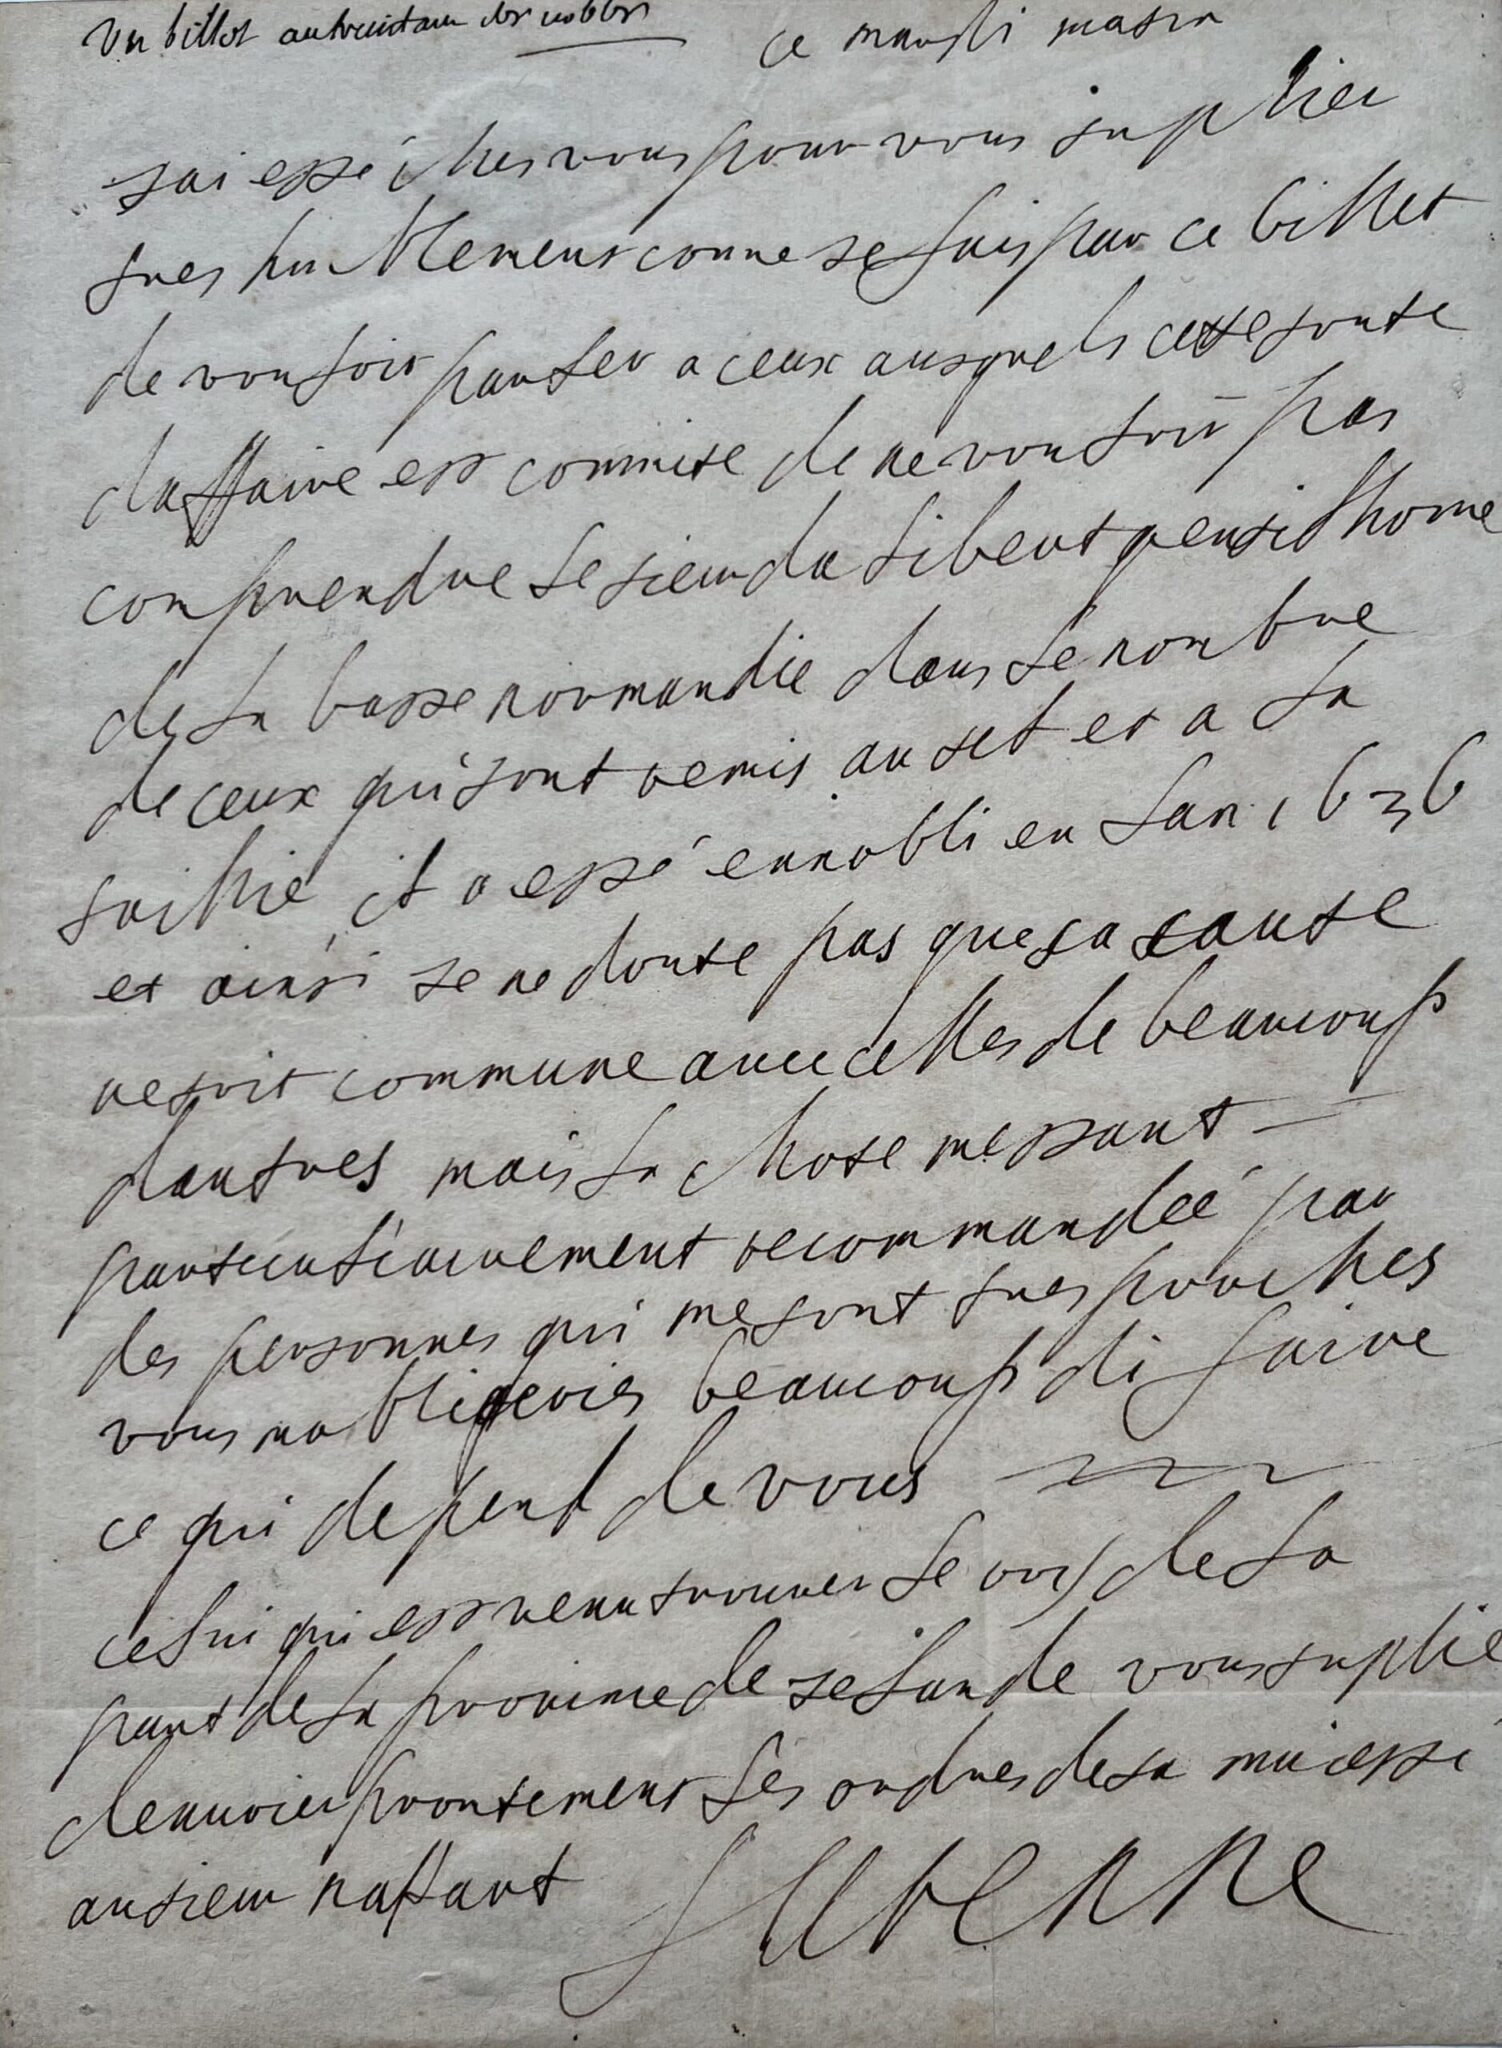 Un billet
ce mardi matin
jai esté ches vous pour vous suplier
tres humblement comme je fais par ce billet
de vouloir parler a ceux ausquels cette sorte
daffaire est commise de ne vouloir pas
comprendre le sieur da libert gentilhome
de la basse normandie dans le nombre
de ceux qui sont remis au sel et a la
taillie il a esté ennobli en lan 1636
et ainsi je ne doute pas que sa cause
ne soit commune avec celles de beaucoup
dautres mais la chose mestant
particulierement recommandée par
des personnes qui me sont tres proches
vous mobligeries beaucoup di faire
ce qui depent de vous
celui qui est venu trouver le roy de la
part de la province de selande vous suplie
denvoier prontement les ordres de sa maiesté
au sieur
Turenne